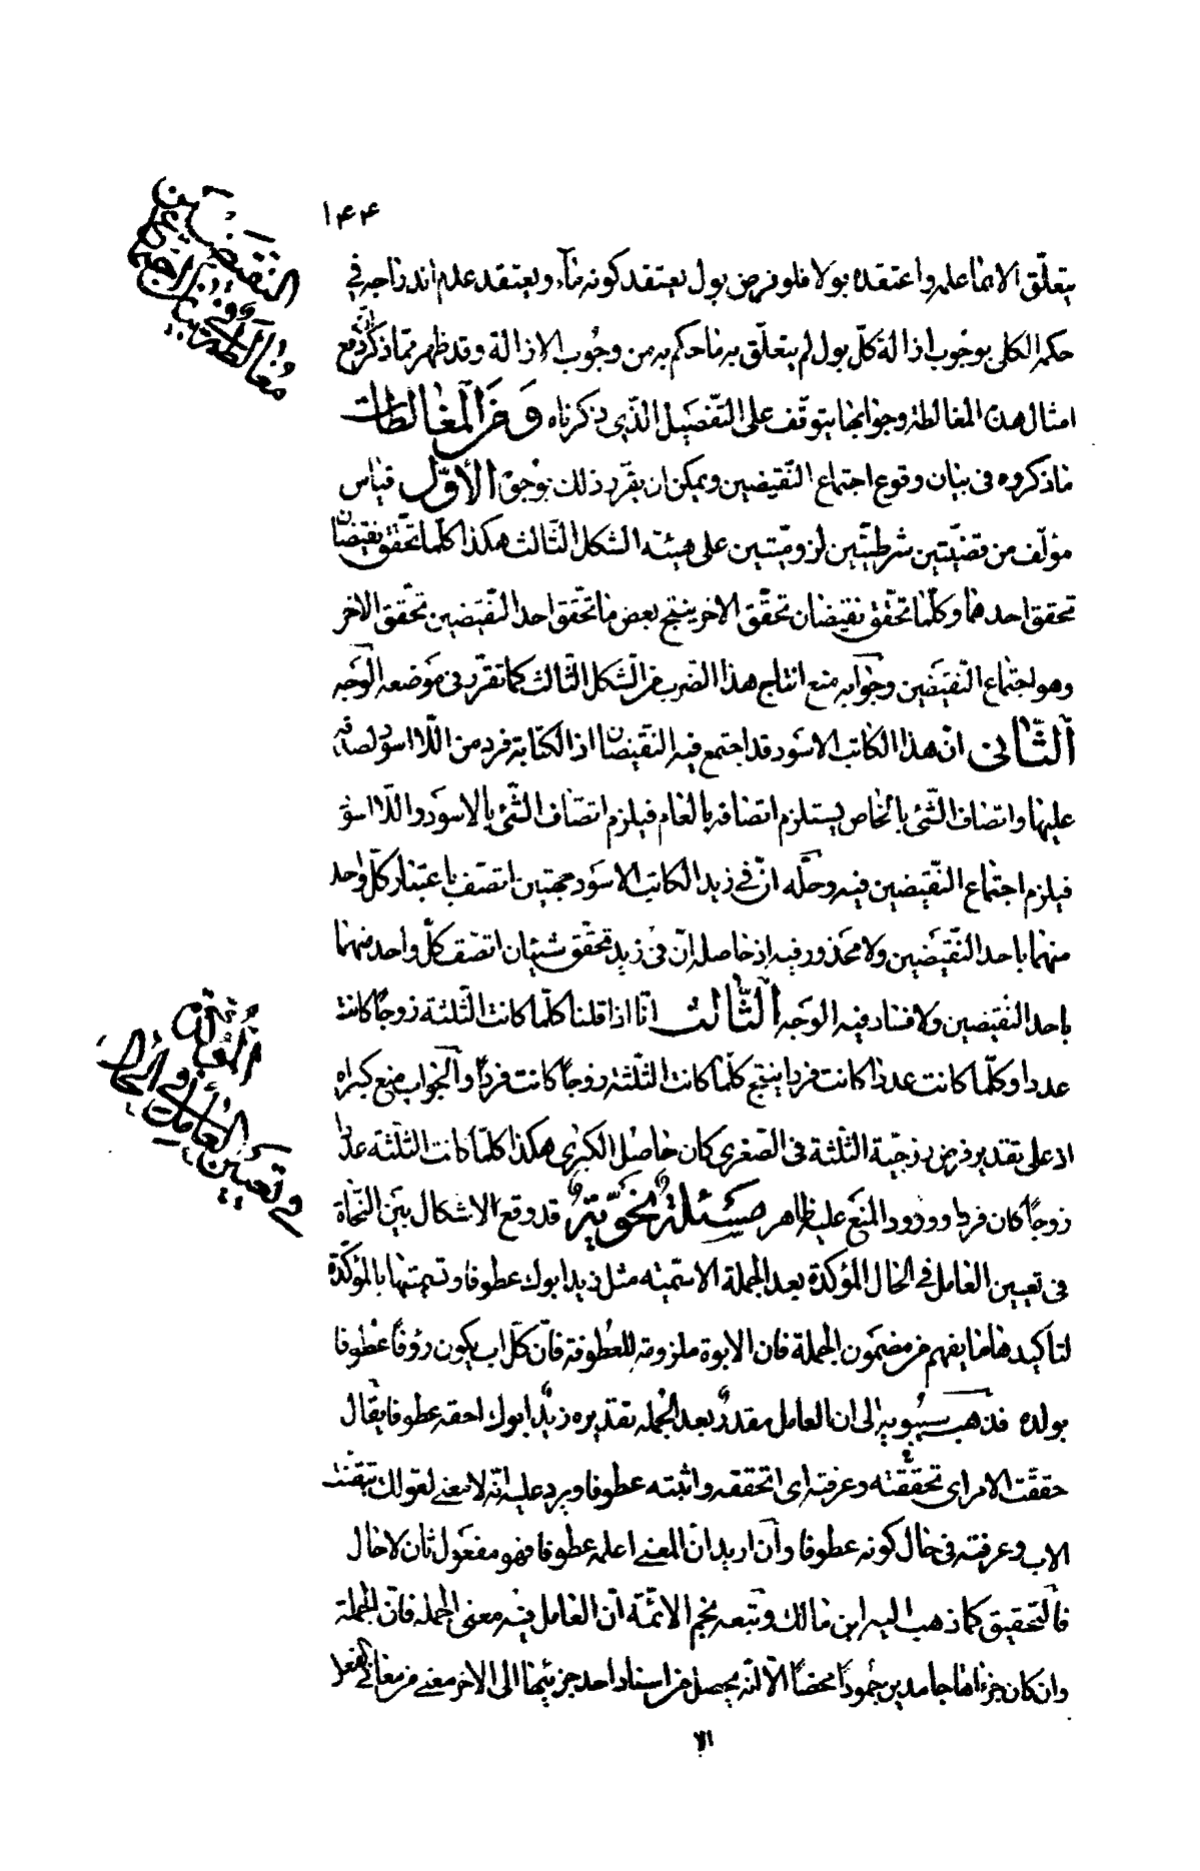 ١٤٤
يتعلّق الا بما علمه واعتقده بولا فلو فرض بول يعتقد كونه ماء ويعتقد عدم اندراجه في
حكمه الكلى بوجوب ازالة كلّ بول لم يتعلّق به ما حكم به من وجوب الازالة وقد ظهر ممّا ذكر دفع
امثال هذه المغالطة وجوابها يتوقف على التفصيل الذى ذكرناه ومن المغالطات
ما ذكروه فى بيان وقوع اجتماع النّقيضين ويمكن ان يقرّر ذلك بوجوه الأوّل قياس
مؤلّف من قضيّتين شرطيّتين لزوميّتين على هيئة الشكل الثّالث هكذا كلّما تحقّق نقيضان
تحقق احدهما وكلّما تحقّق نقيضان تحقّق الاخر ينتج بعض ما تحقق احد النّقيضين تحقّق الاخر
وهو اجتماع النّقيضين وجوابه منع انتاج هذا الضرب من الشّكل الثّالث كما تقرّر فى موضعه الوجه
الثّانى انّ هذا الكاتب الاسود قد اجتمع فيه النقيضان اذ الكتابة فرد من اللّا اسود لصدقه
عليها واتصاف الشّئ بالخاص يستلزم اتصافه بالعام فيلزم اتصاف الشّئ بالاسود واللّا اسود
فيلزم اجتماع النّقيضين فيه وحلّه انّ فى زيد الكاتب الاسود جهتين اتصف باعتبار كلّ واحد
منهما باحد النّقيضين ولا محذور فيه اذ حاصله انّ فى زيد تحقّق شيئان اتصف كلّ واحد منهما
باحد النقيضين ولا فساد فيه الوجه الثّالث انّا اذا قلنا كلّما كانت الثّلثة زوجًا كانت
عددا وكلّما كانت عددا كانت فردا ينتج كلّما كانت الثلثة زوجًا كانت فردًا والجواب منع كبراه
اذ على تقدير فرض زوجيّة الثّلثة فى الصّغرى كان حاصل الكبرى هكذا كلّما كانت الثّلثة عددا
زوجًا كان فردا وورود المنع عليه ظاهر مسئلة نحويّة قد وقع الاشكال بين النّحاة
فى تعيين العامل فى الحال المؤكدة بعد الجملة الاسميّه مثل زيد ابوك عطوفا وتسميتها بالمؤكّدة
لتاكيدها ما يفهم من مضمون الجملة فان الابوة ملزومة للعطوفة فانّ كلّ اب يكون رؤفًا عطوفا
بولده فذهب سيبويه الى ان العامل مقدّر بعد الجمله تقديره زيد ابوك احقه عطوفا يقال
حققت الامر اى تحققته وعرفته اى اتحققه واثبته عطوفا ويرد عليه انّه لا معنى لقولك تيقنت
الاب وعرفته فى حال كونه عطوفا وان اريد انّ المعنى اعلمه عطوفا فهو مفعول ثان لا حال
فالتحقيق كما ذهب اليه ابن مالك وتبعه نجم الائمّة انّ العامل فيه معنى الجمله فانّ الجملة
وان كان جزءاها جامدين جمودًا محضًا الّا انّه يحصل من اسناد احد جزئيها الى الاخر معنى من معانى الفعل
الا
مغالطة فى بيان اجتماع
النقيضين
فى تعيين العامل فى الحال
المؤكّدة